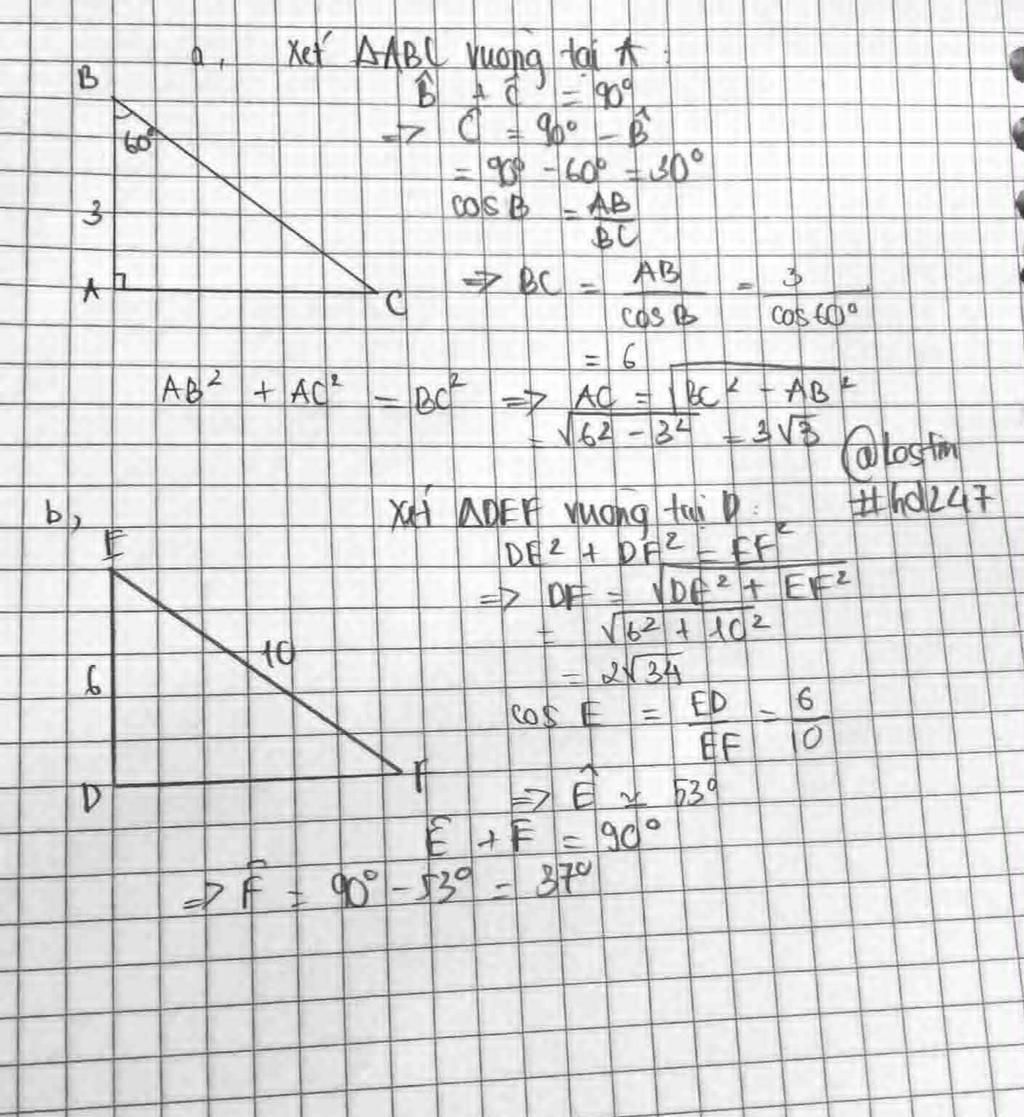 a, Xét ΔABC vuông tại A:
B̂ + Ĉ = 90°
=> Ĉ = 90° - B̂
= 90° - 60° = 30°
cos B = AB/BC
=> BC = AB/cos B = 3/cos 60°
= 6
AB² + AC² = BC² => AC = √BC² - AB²
= √6² - 3² = 3√3
@Lostin
#hd247
B
60°
3
A
C
b, Xét ΔDEF vuông tại D:
DE² + DF² = EF²
=> DF = √DE² + EF²
= √6² + 10²
= 2√34
cos E = ED/EF = 6/10
=> Ê ≈ 53°
Ê + F̂ = 90°
=> F̂ = 90° - 53° = 37°
E
10
6
D
F